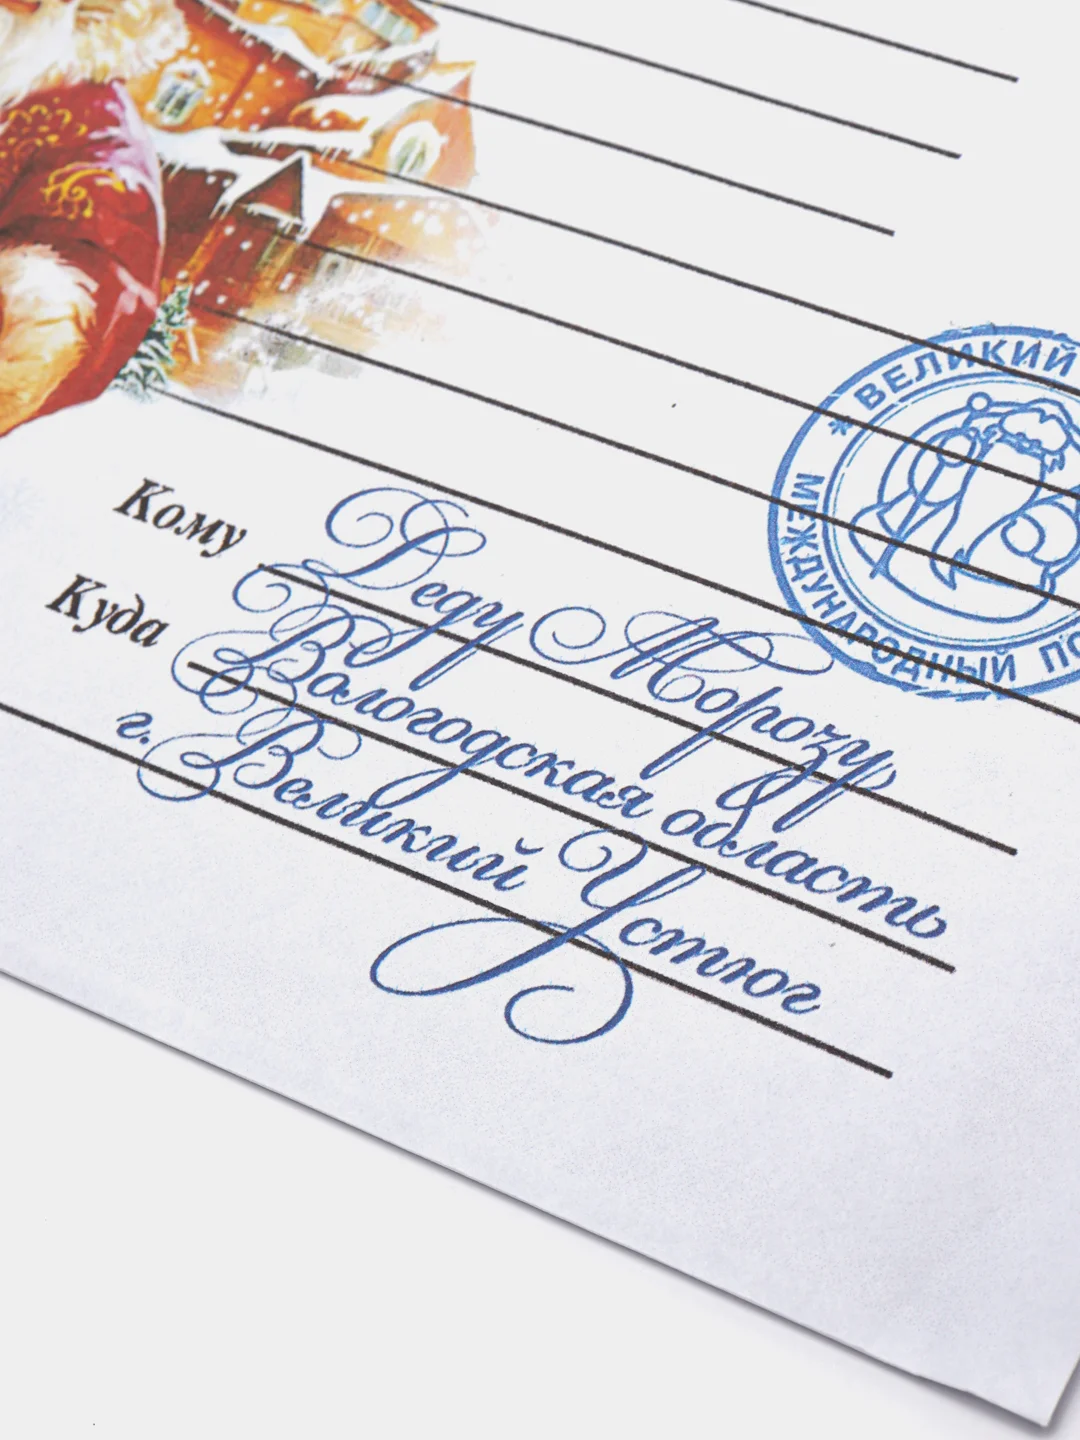 * ВЕЛИКИЙ
МЕЖДУНАРОДНЫЙ
Кому Деду Морозу,
Куда Вологодская область
г. Великий Устюг